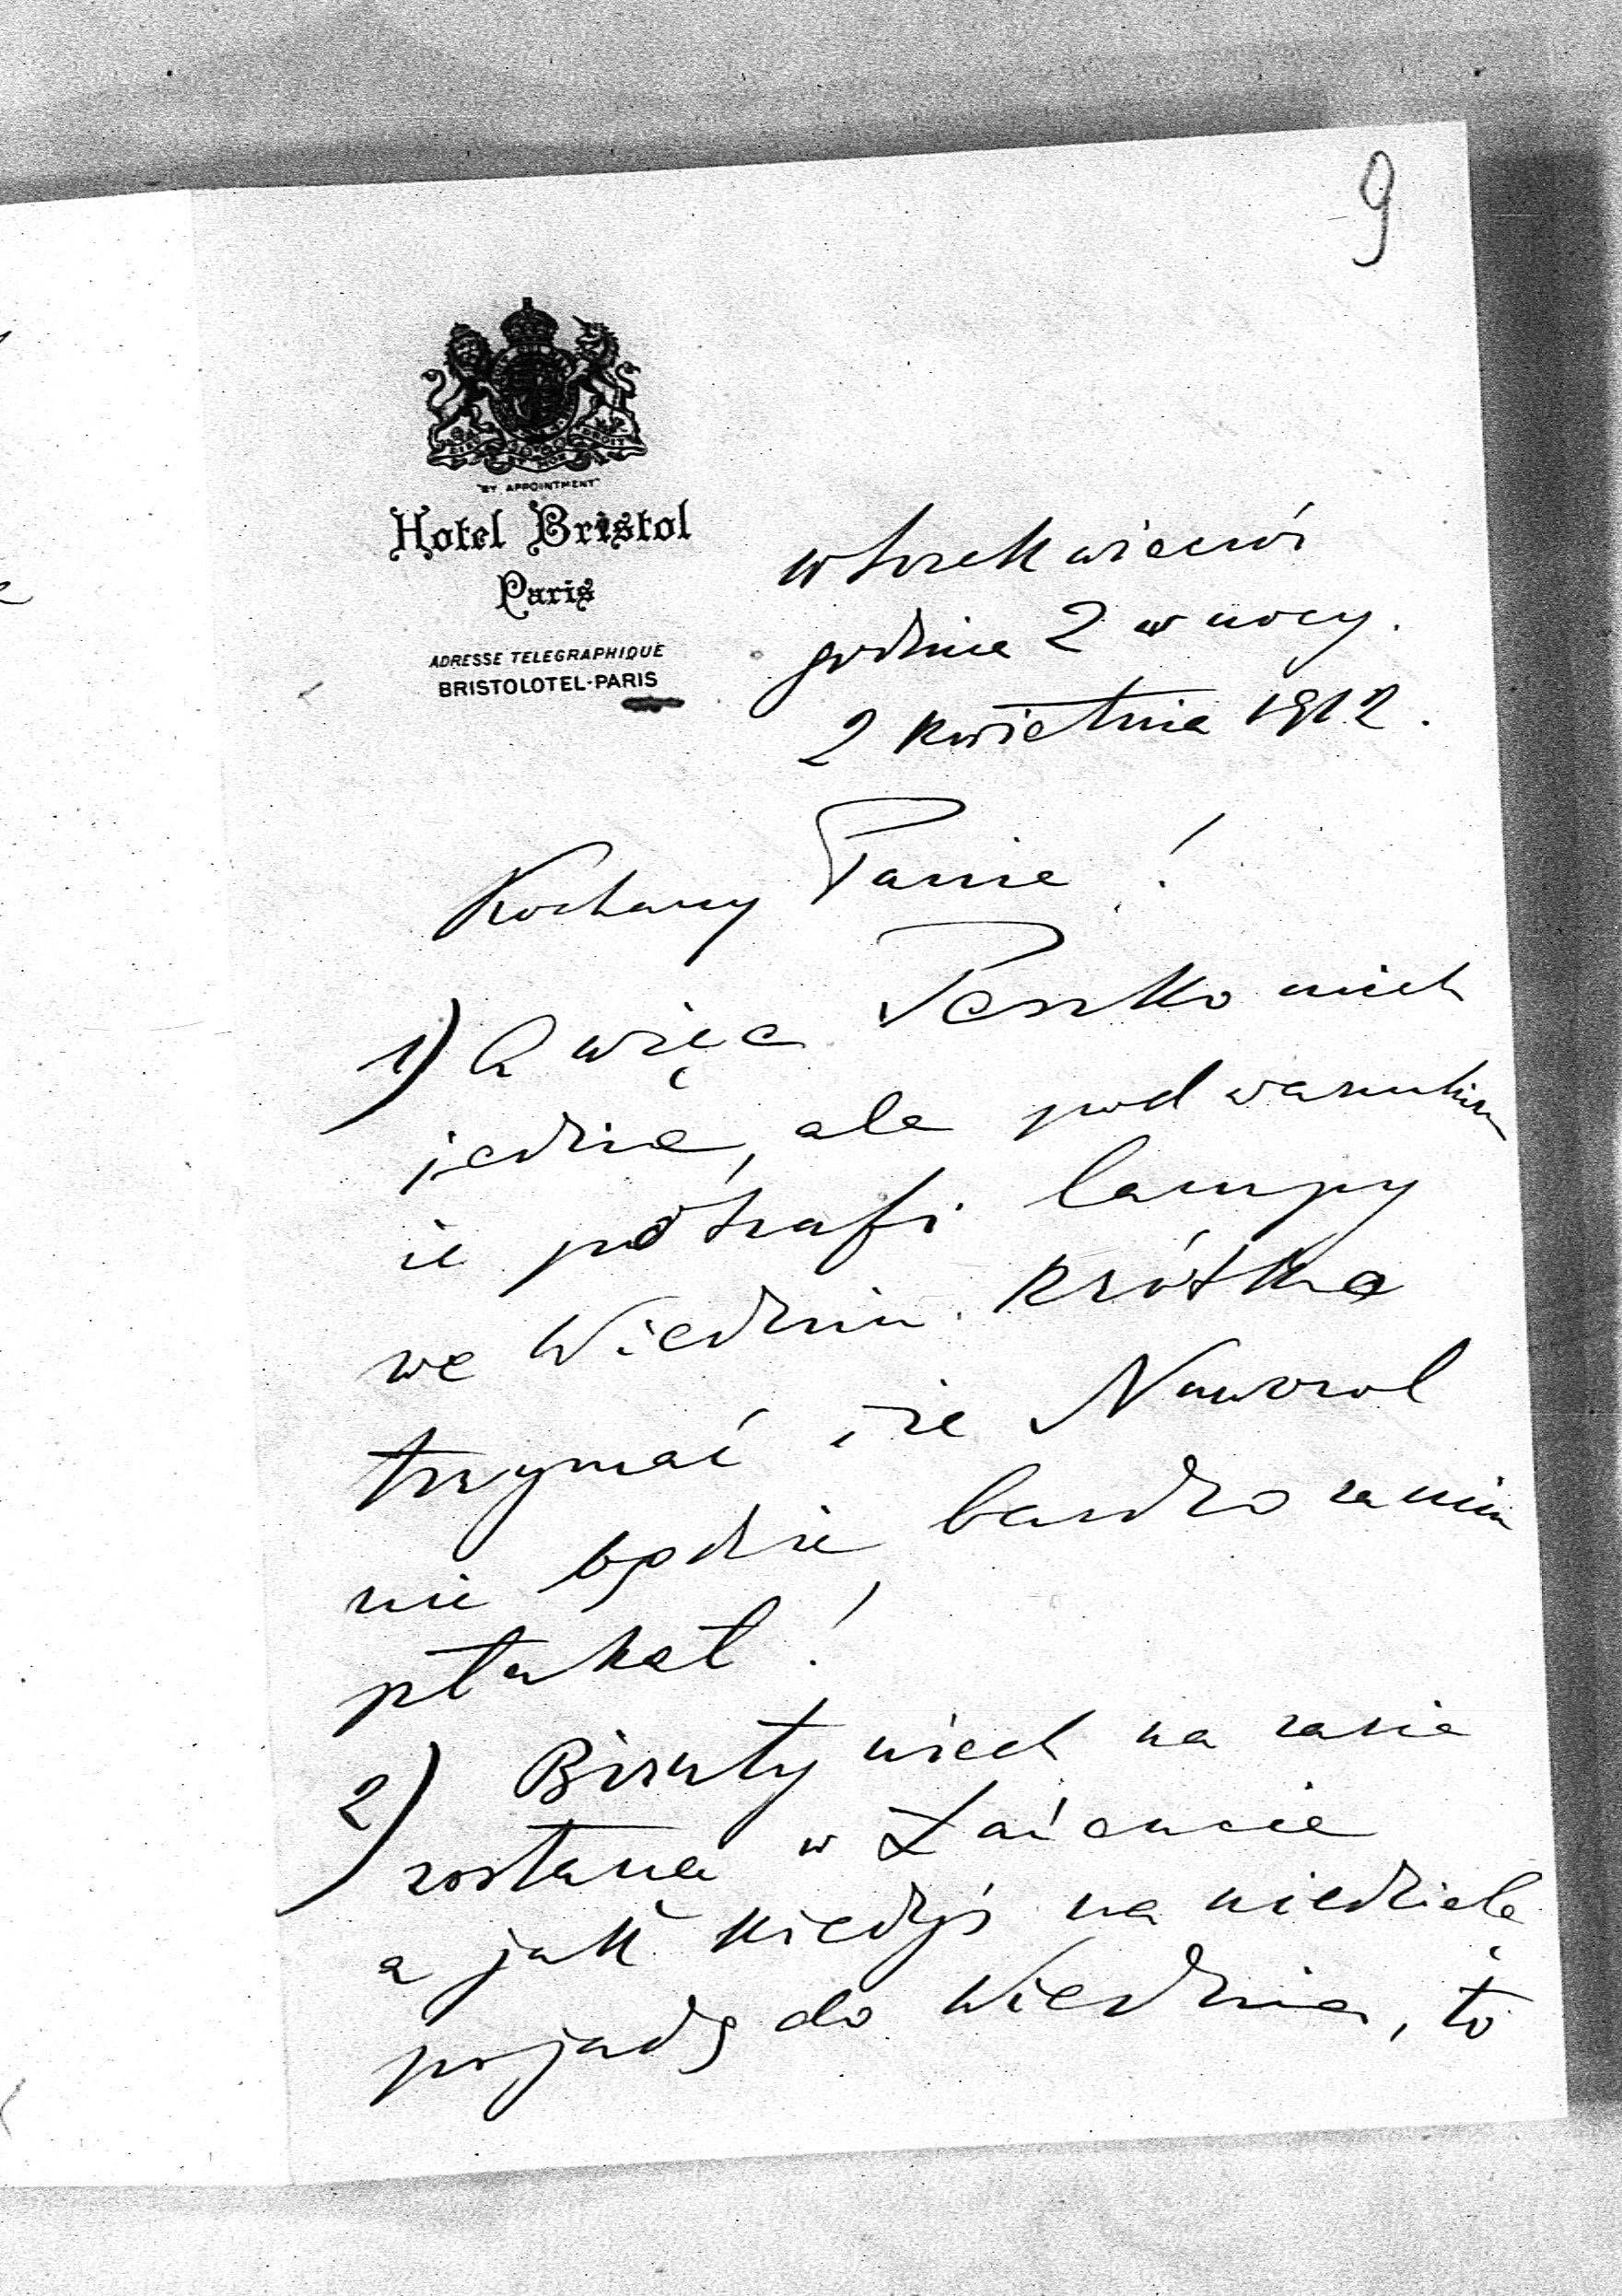 9
DIEU ET MON DROIT
"BY APPOINTMENT"
Hotel Bristol
Paris
ADRESSE TELEGRAPHIQUE
BRISTOLOTEL-PARIS
wtorek wieczór
godzina 2 w nocy.
2 kwietnia 1912.
Kochany Panie!
1) A więc Peszko niech
jedzie, ale pod warunkiem
że potrafi lampy
we Wiedniu krótko
trzymać i że Nawowol
nie będzie bardzo za nim
płakał!
2) Biruty niech na razie
zostaną w Łańcucie
a jak kiedyś na niedzielę
pojadę do Wiednia, to